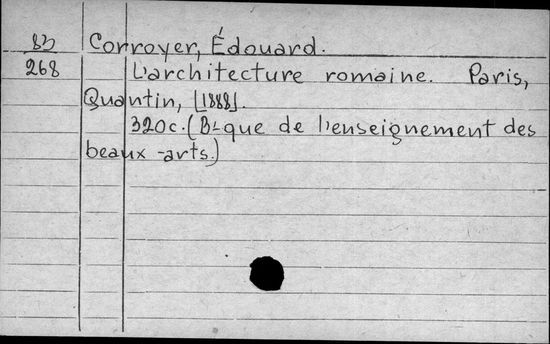 83 Corroyer, Édouard.
268 L'architecture romaine. Paris,
Quantin, [1888].
320c. (B-que de l'enseignement des
beaux-arts.)